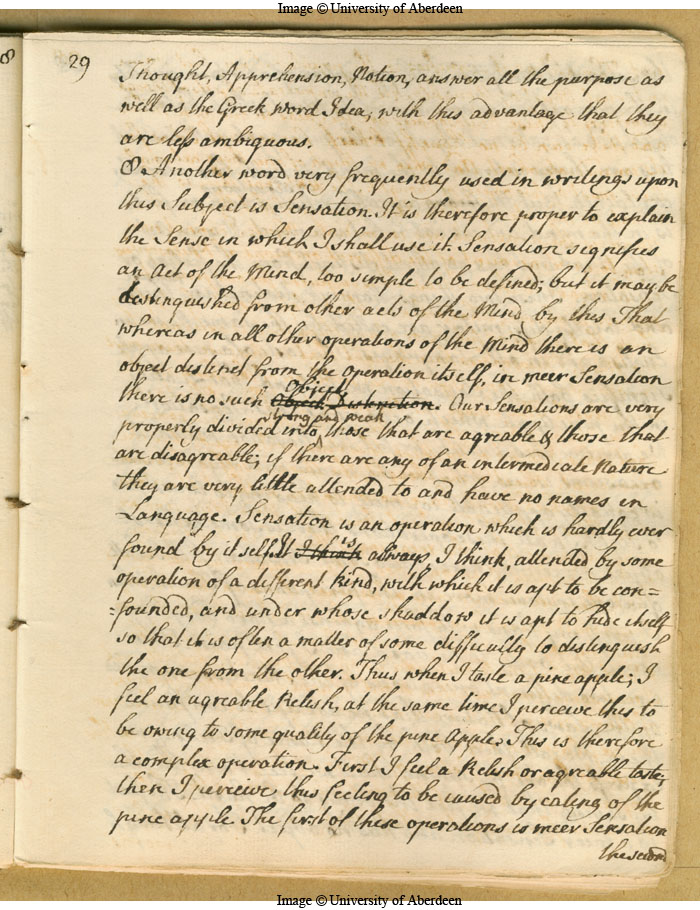 Image © University of Aberdeen
8
29
Thought, Apprehension, Notion, answer all the purpose as
well as the Greek word Idea, with this advantage that they
are less ambiguous.
8 Another word very frequently used in writings upon
this Subject is Sensation. It is therefore proper to explain
the Sense in which I shall use it. Sensation signifies
an act of the Mind, too simple to be defined; but it may be
distinguished from other acts of the Mind by this That
whereas in all other operations of the Mind there is an
object distinct from the operation itself, in meer Sensation
Object
there is no such Object Distinction. Our Sensations are very
strong and weak
properly divided into those that are agreable & those that
are disagreable; if there are any of an intermediate Nature
they are very little attended to and have no names in
Language. Sensation is an operation which is hardly ever
is
found by it self. It I think always, I think, attended by some
operation of a different kind, with which it is apt to be con=
=founded, and under whose shaddow it is apt to hide itself
so that it is often a matter of some difficulty to distinguish
the one from the other. Thus when I taste a pine apple; I
feel an agreable Relish, at the same time I perceive this to
be owing to some quality of the pine Apple. This is therefore
a complex operation. First I feel a Relish or agreable taste,
then I perceive this feeling to be caused by eating of the
pine apple The first of these operations is meer Sensation
the second
Image © University of Aberdeen